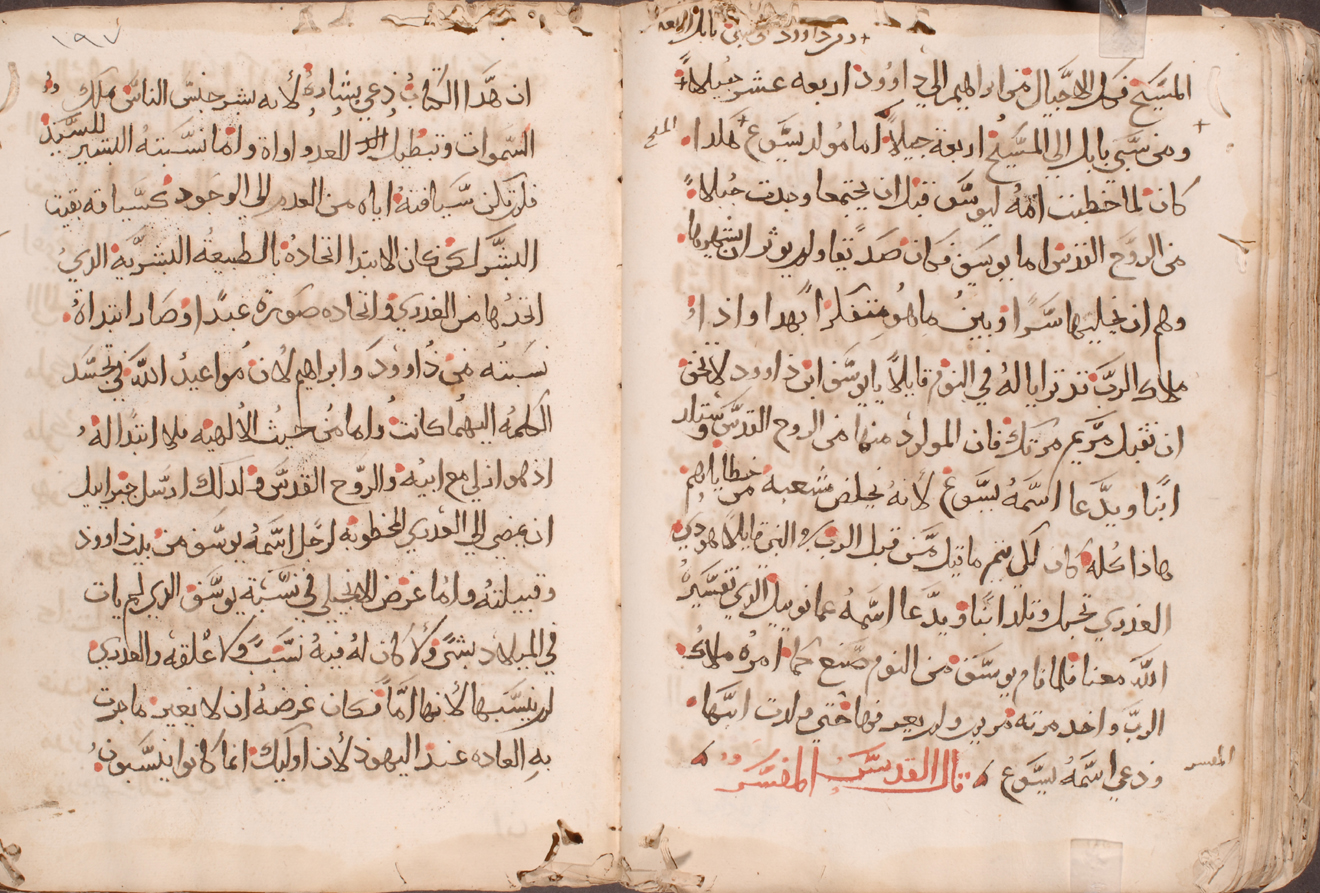 + ومن داوود و سبي بابل اربعه
المسيح فكل الاجيال من ابراهيم الي داوود اربعه عشر جيلاً
ومن سبي بابل الي المسيح اربعة جيلاً اما مولد يسوع المسيح هكدا
كان لما خطبت امه ليوسف قبل ان يجتمعا وجدت حبلا
من الروح القدس اما يوسف فكان صديقا ولم يوثر ان يشهرها
وهم ان تخليتها سراً وبين ما هو متفكراً بهدا وادا
ملاك الرب قد ترايا له في النوم قايلاً يا يوسف ابن داوود لا تخف
ان تقبل مريم مرتك فان المولود منها من الروح القدس وستلد
ابنًا ويدعا اسمه يسوع لانه يخلص شعبه من خطاياهم
هادا كله كان لكي يتم ما قيل من قبل الرب بالنبي قايلا هودي
العدري تحبل وتلد ابنًا ويدعا اسمه عمانوييل الدي تفسيره
الله معنا فلما قام يوسف من النوم صنع كما امره ملاك
الرب واخد مرته مريم ولم يعرفها حتي ولدت ابنها
ودعي اسمه يسوع قال القديس المفسر
المفسر
١٩٧
ان هدا الكتاب دعي بشاره لانه بشر جنس الناس ملك
السموات وتبطيل العداواة واما نسبته البشر للسيد
فلم تكن سياقته اياه من العدم الي الوجود كسياقة بقيت
البشر لكن كان الابتدا اتحاده بالطبيعه البشرية الدي
اتخدها من العدري واتحاده صورة عبداً وصار ابتداه
نسبته من داوود وابراهيم لان مواعيد الله في تجسد
الكلمه اليهما كانت واما من حيث الالهيه فلا ابتدا له
اد هو ازلي مع ابيه والروح القدس ولدلك ارسل جبراييل
ان يمضي الي العدري المخطوبه لرجل اسمه يوسف من بيت داوود
وقبيلته واما غرض الانجيلي في نسبة يوسف الدي لم يات
في الميلاد بشي ولا كان له فيه نسب ولا علقه والعدري
لم ينسبها لانها امًا فكان غرضه ان لا يغير ما جرت
به العاده عند اليهود لان اوليك انما كانوا ينسبون